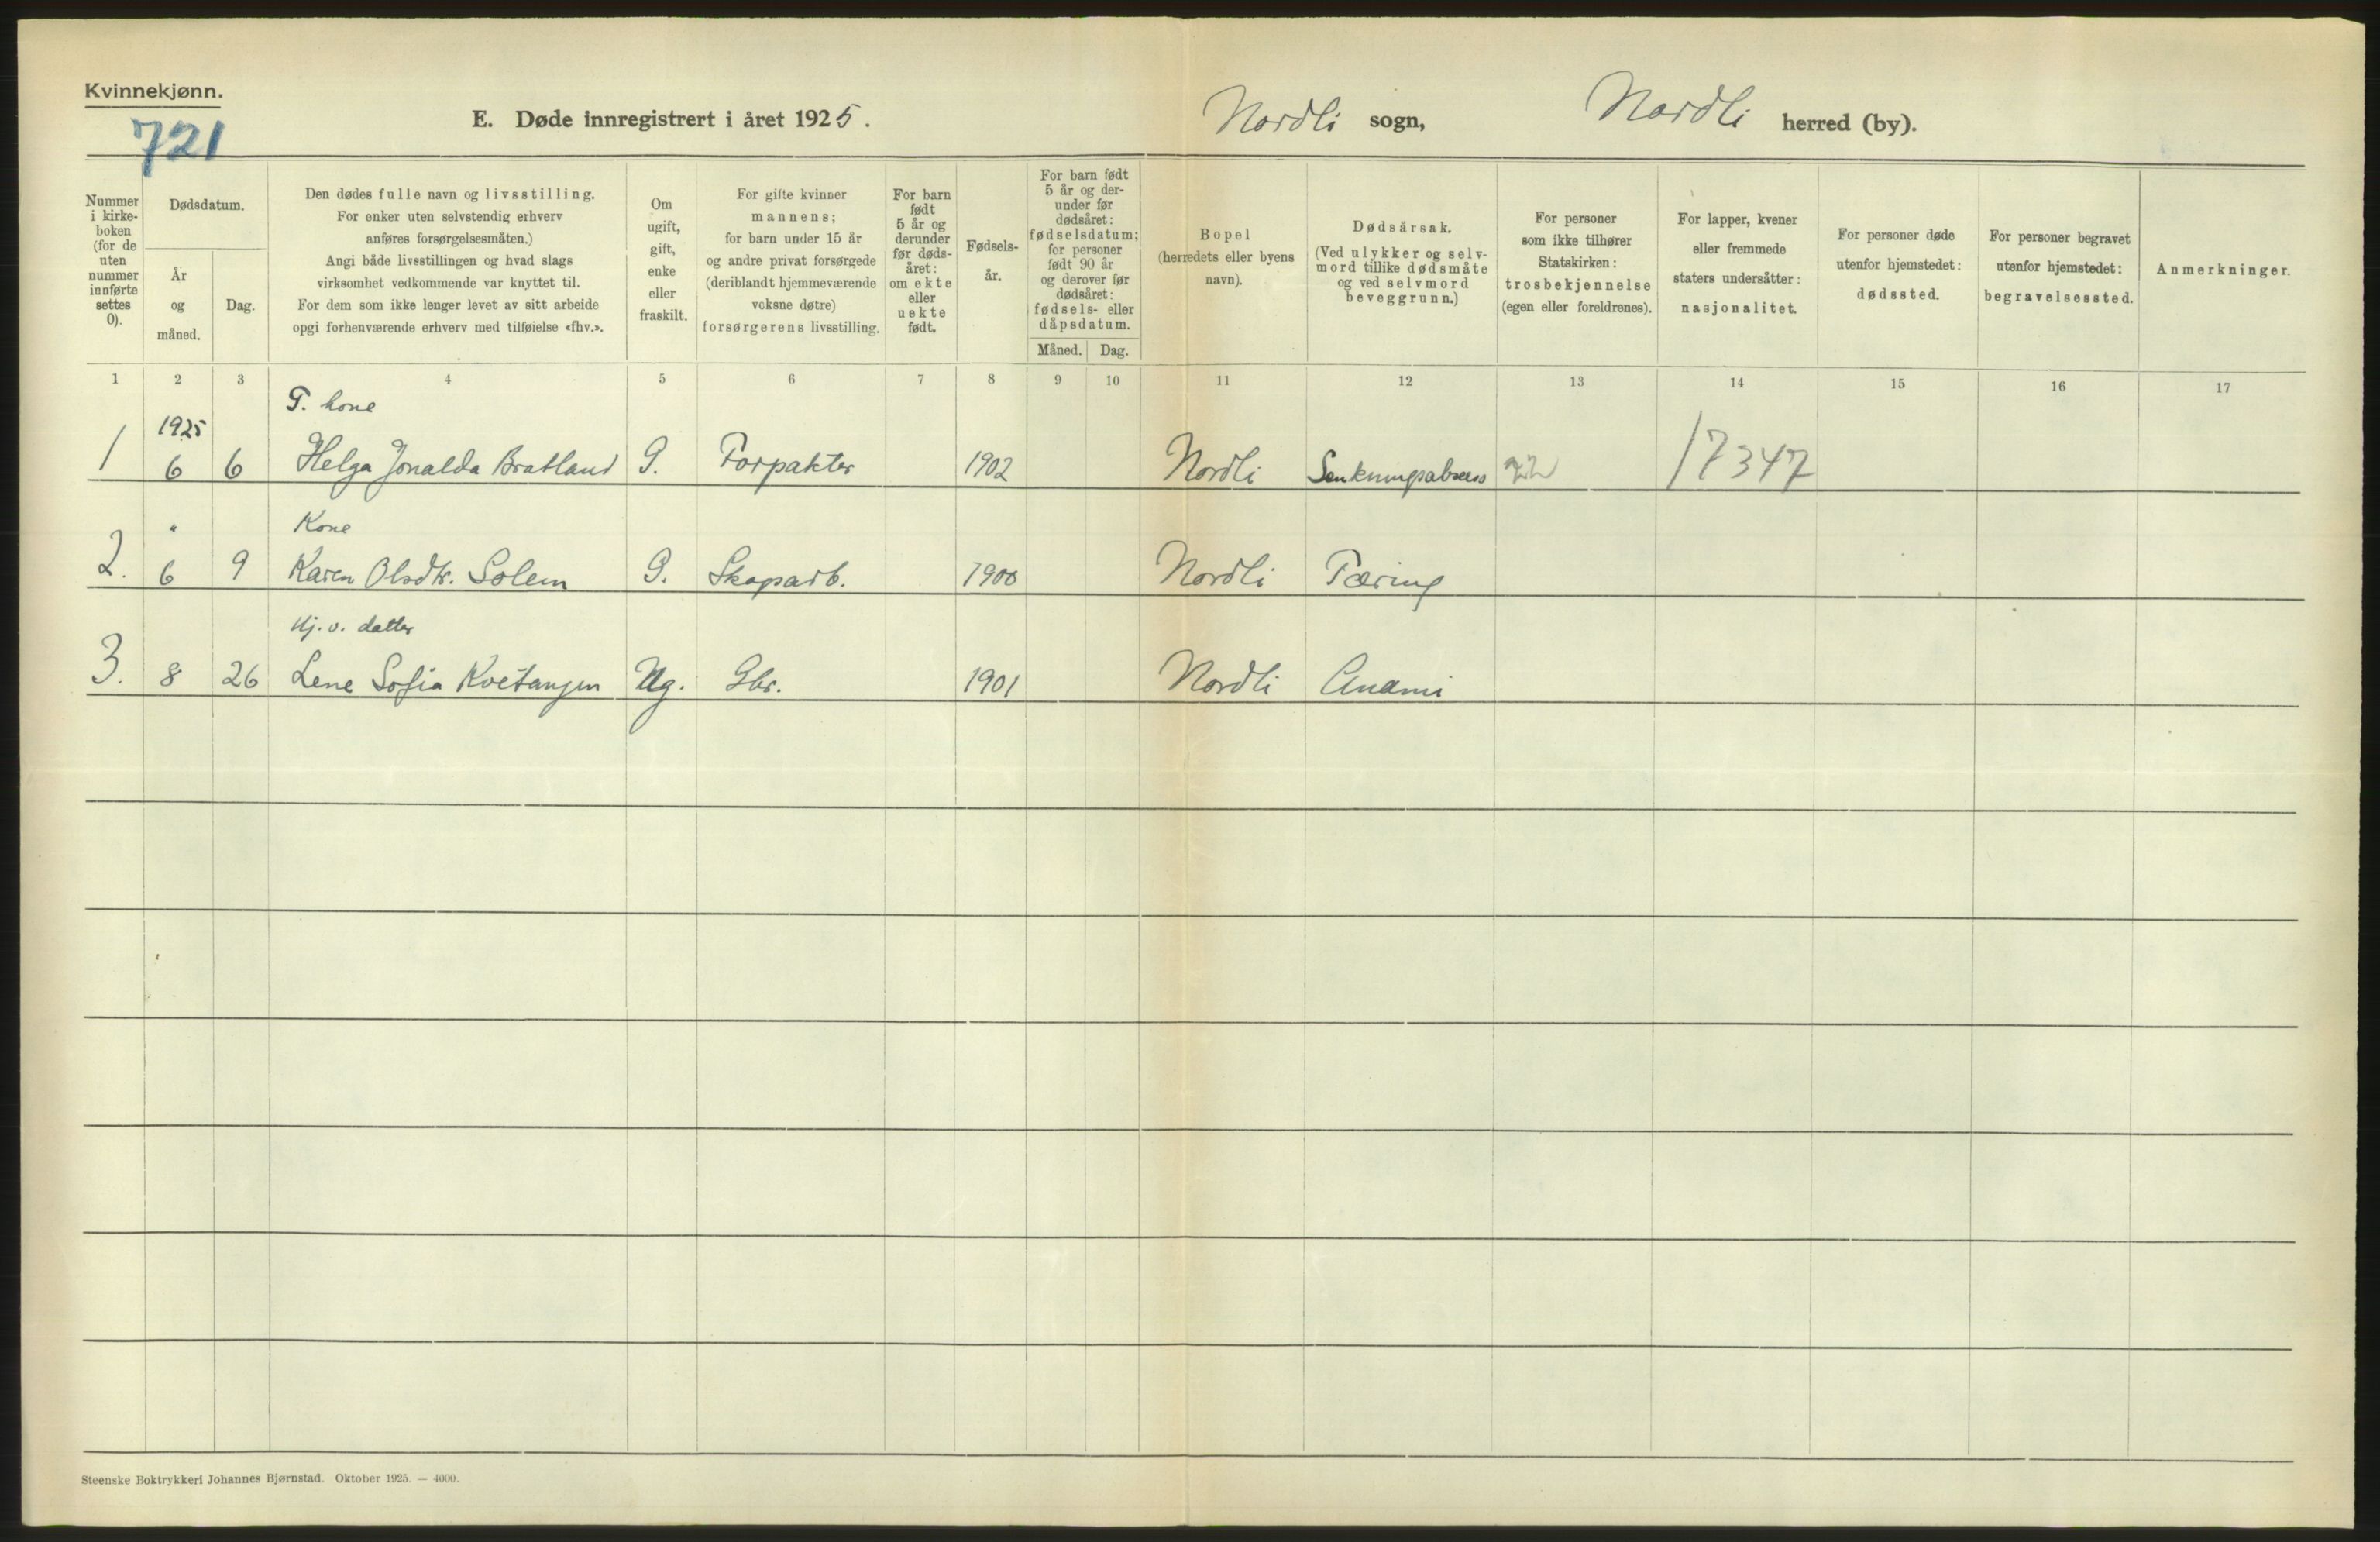 Kvinnekjønn.
721
E. Døde innregistrert i året 1925.
Nordli sogn, Nordli herred (by).
Nummer i kirke- boken (for de uten nummer innførte settes 0).
Dødsdatum.
År og måned.
Dag.
Den dødes fulle navn og livsstilling.
For enker uten selvstendig erhverv
anføres forsørgelsesmåten.)
Angi både livsstillingen og hvad slags
virksomhet vedkommende var knyttet til.
For dem som ikke lenger levet av sitt arbeide
opgi forhenværende erhverv med tilføielse «fhv.».
Om
ugift,
gift,
enke
eller
fraskilt.
For gifte kvinner
mannens;
for barn under 15 år
og andre privat forsørgede
(deriblandt hjemmeværende
voksne døtre)
forsørgerens livsstilling.
For barn
født
5 år og
derunder
før døds-
året:
om ekte
eller
uekte
født.
Fødsels-
år.
For barn født
5 år og der-
under før
dødsåret:
fødselsdatum;
for personer
født 90 år
og derover før
dødsåret:
fødsels- eller
dåpsdatum.
Måned. Dag.
Bopel
(herredets eller byens
navn).
Dødsårsak.
(Ved ulykker og selv-
mord tillike dødsmåte
og ved selvmord
beveggrunn.)
For personer
som ikke tilhører
Statskirken:
trosbekjennelse
(egen eller foreldrenes).
For lapper, kvener
eller fremmede
staters undersåtter:
nasjonalitet.
For personer døde
utenfor hjemstedet:
dødssted.
For personer begravet
utenfor hjemstedet:
begravelsessted.
Anmerkninger.
1 2 3 4 5 6 7 8 9 10 11 12 13 14 15 16 17
G. kone
1925
1 6 6 Helga Jonalda Bratland G. Forpakter 1902 Nordli Senkningsabsess 17347
" Kone
2. 6 9 Karen Olsdtr. Solem G. Skogsarb. 1900 Nordli Tæring
Hj. v. datter
3. 8 26 Lene Sofia Kvetangen Ug. Gbr. 1901 Nordli Anæmi
Steenske Boktrykkeri Johannes Bjørnstad. Oktober 1925. — 4000.